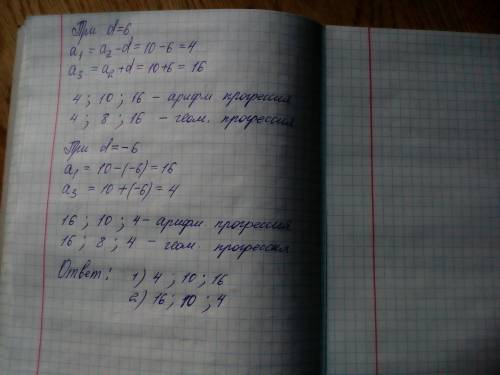 При d=6
a₁ = a₂ - d = 10 - 6 = 4
a₃ = a₂ + d = 10 + 6 = 16
4 ; 10 ; 16 - арифм. прогрессия
4 ; 8 ; 16 - геом. прогрессия
При d = -6
a₁ = 10 - (-6) = 16
a₃ = 10 + (-6) = 4
16 ; 10 ; 4 - арифм. прогрессия
16 ; 8 ; 4 - геом. прогрессия
Ответ: 1) 4 ; 10 ; 16
2) 16 ; 10 ; 4